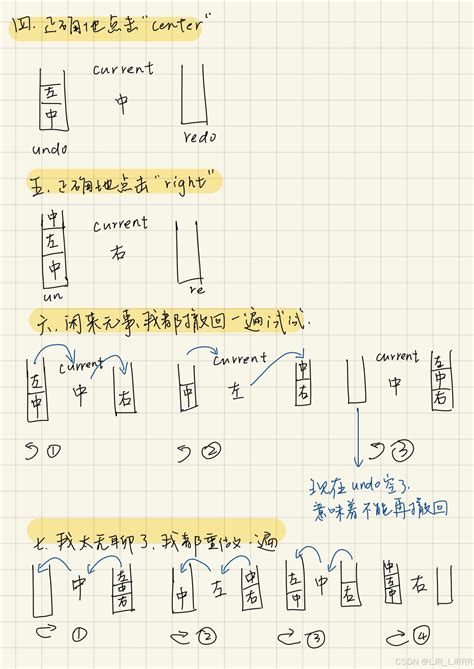 四. 正确地点击"center"
current
左
中
中
undo
redo
五. 正确地点击"right"
current
中
左
中
右
un
re
六. 闲来无事,我都撤回一遍试试.
current
左
中
中
右
①
current
中
左
中
右
②
current
中
左
中
右
③
现在undo空了.
意味着不能再撤回
七. 我太无聊了,我都重做一遍
中
左
中
右
①
中
左
中
右
②
左
中
中
右
③
中
左
中
右
④
CSDN @LJR_LJRRR